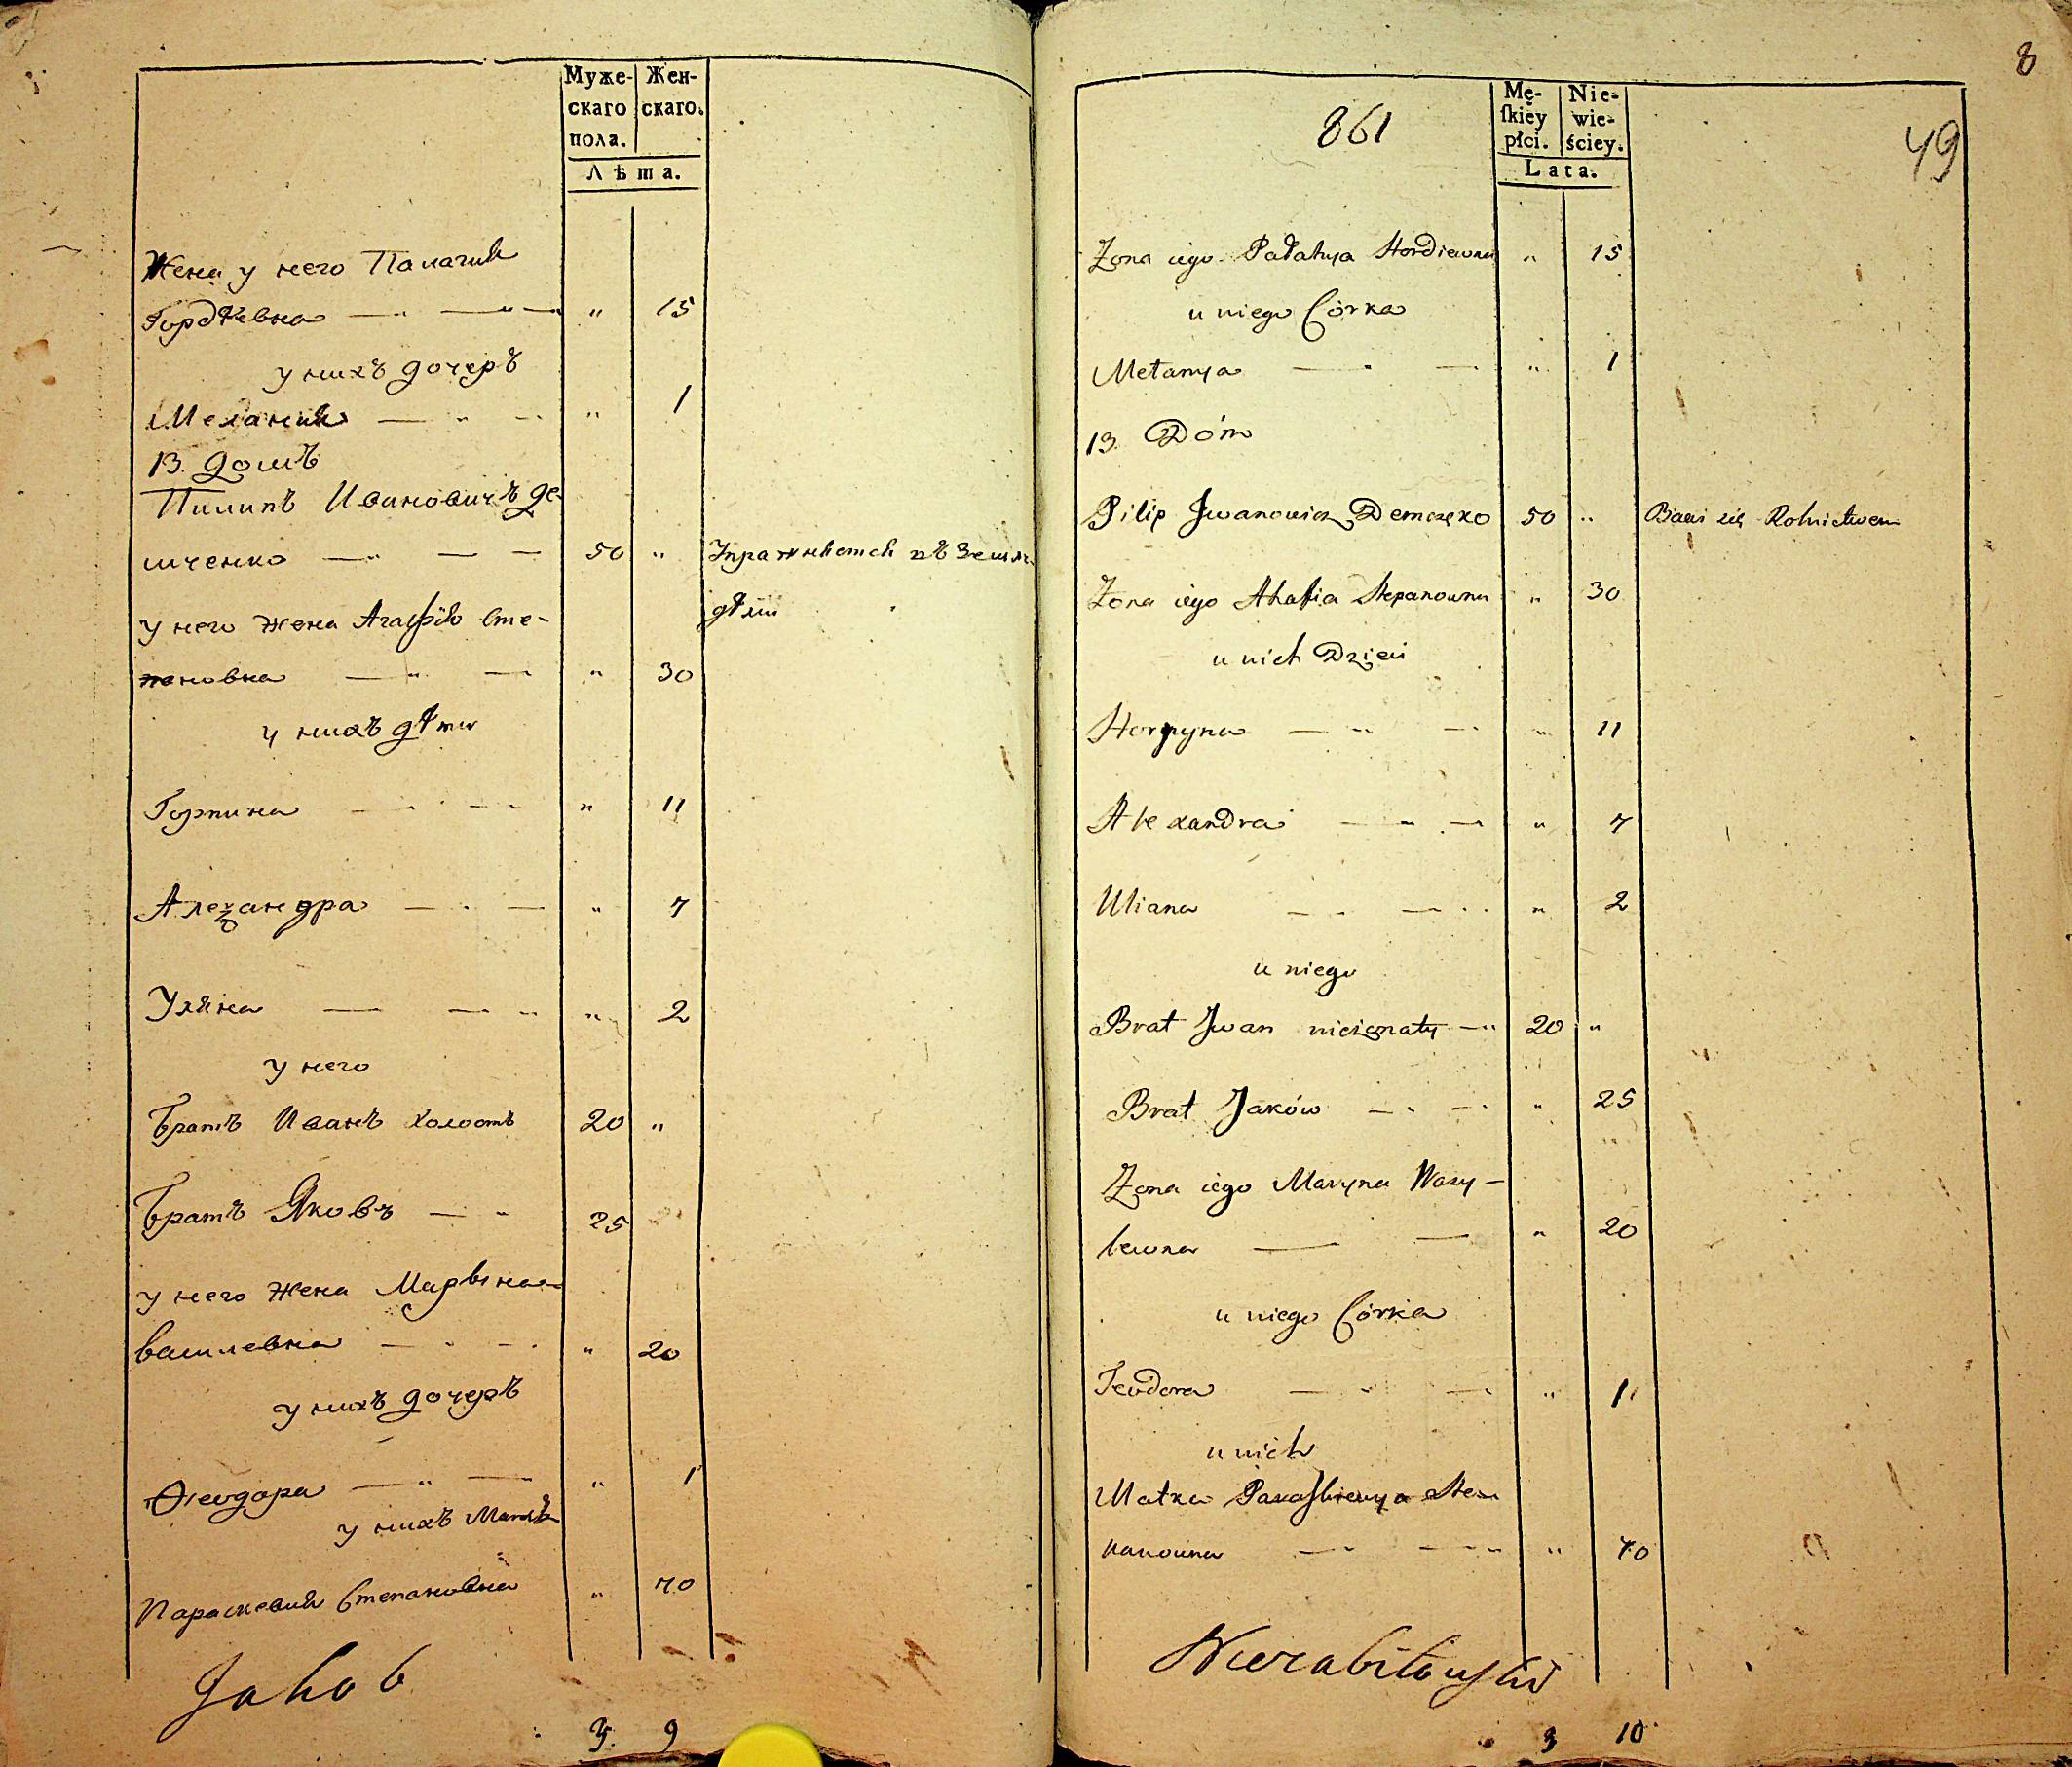 Муже- Жен-
скаго скаго.
пола.
Лѣта.
Жена у него Палагия
Гордѣевна — " — " — " 15
у нихъ дочерь
Мелания — " — " 1
13. домъ
Пилипъ Ивановичъ Де-
мченко — " — — 50 " Упражняется въ земле-
дѣлии
у него жена Агафія Сте-
пановна — " — " 30
у нихъ дѣти
Горпина — " — " 11
Алеѯандра — " — " 7
Уляна — — " " 2
у него
Братъ Иванъ холостъ 20 "
Братъ Яковъ — " 25
у него жена Марына
Василевна — " — " 20
у нихъ дочерь
Ѳеодора — " — " 1
у нихъ Мать
Параскевия Степановна " 70
Jakob
3. 9
8
861
49
Mę- Nie-
ſkiey wie-
płci. ściey.
Lata.
Zona iego Pałahya Hordiewna " 15
u niego Córka
Mełanya — " — " 1
13. Dóm
Pilip Jwanowicz Demczęko 50 " Bawi się Rolnictwem
Zona iego Ahafia Stepanowna " 30
u nich Dzieci
Horpyna — " — " 11
Alexandra — " — " 7
Uliana — " — " " 2
u niego
Brat Jwan nieżonaty — " 20 "
Brat Jaków — " — " 25
Zona iego Maryna Wasy-
lewna — — " 20
u niego Córka
Teodora — " — " 1
u nich
Matka Paraskiewya Ste-
panowna — " — " " 70
3 10